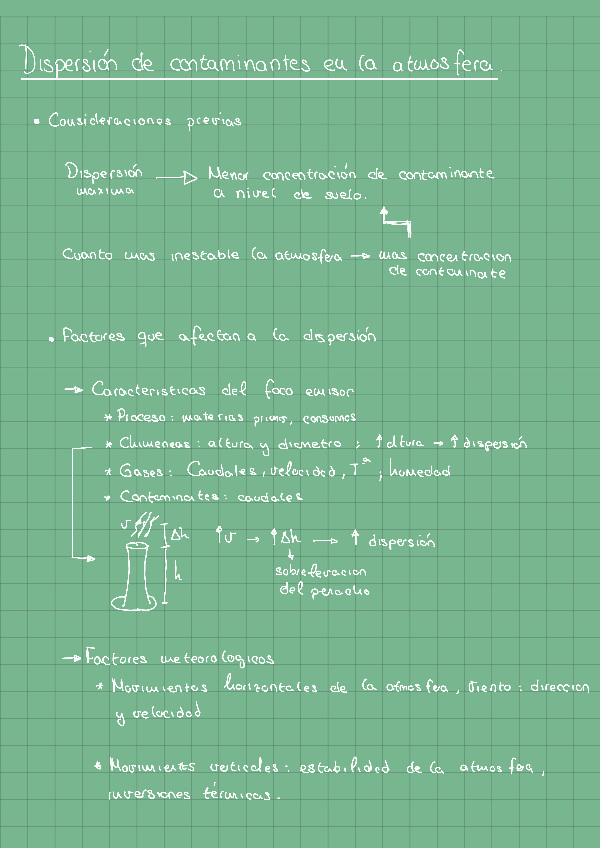 Dispersión de contaminantes en la atmosfera.
• Consideraciones previas
Dispersión maxima → Menor concentración de contaminante
a nivel de suelo.
Cuanto mas inestable la atmosfera → mas concentracion
de contaminate
• Factores que afectan a la dispersión
→ Caracteristicas del foco emisor
* Proceso: materias primas, consumos
* Chimeneas: altura y diametro ; ↑ altura → ↑ dispersión
* Gases: Caudales, velocidad, Tª, humedad
* Contaminates: caudales
v Δh h
↑v → ↑Δh → ↑ dispersión
sobreelevacion
del penacho
→ Factores meteorologicos
* Movimientos horizontales de la atmosfera, viento: direccion
y velocidad
* Movimients verticales: estabilidad de la atmosfera,
inversiones térmicas.